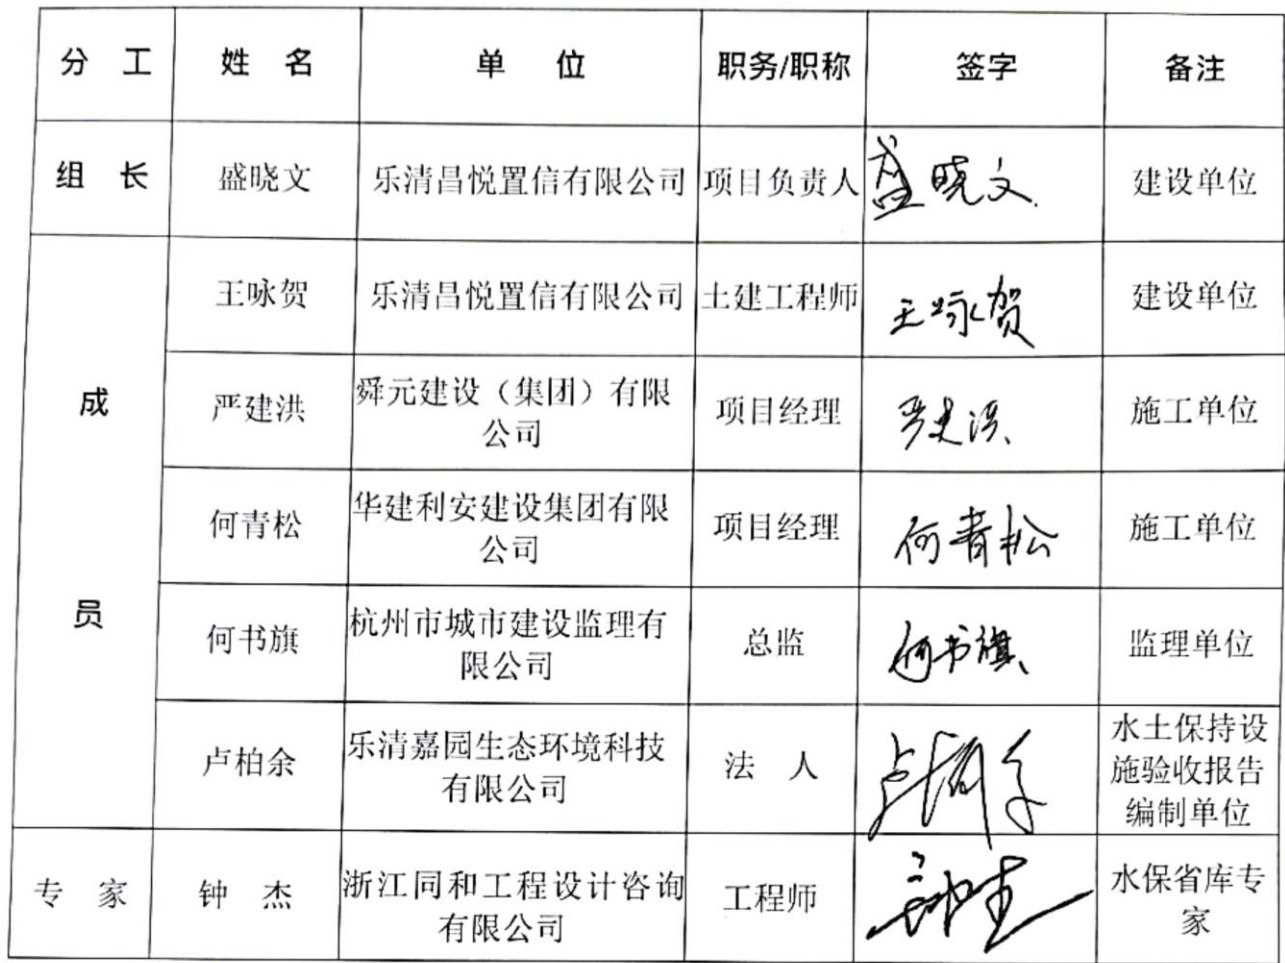 分 工 姓 名 单 位 职务/职称 签字 备注
组 长 盛晓文 乐清昌悦置信有限公司 项目负责人 盛晓文 建设单位
成
员
王咏贺 乐清昌悦置信有限公司 土建工程师 王咏贺 建设单位
严建洪 舜元建设（集团）有限
公司 项目经理 严建洪 施工单位
何青松 华建利安建设集团有限
公司 项目经理 何青松 施工单位
何书旗 杭州市城市建设监理有
限公司 总监 何书旗 监理单位
卢柏余 乐清嘉园生态环境科技
有限公司 法 人 卢柏余 水土保持设
施验收报告
编制单位
专 家 钟 杰 浙江同和工程设计咨询
有限公司 工程师 钟杰 水保省库专
家